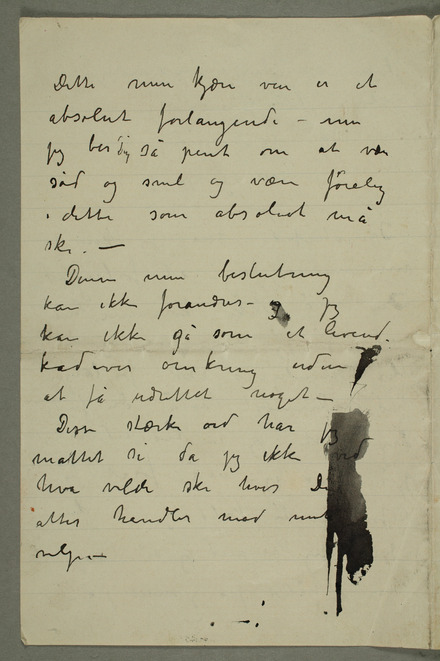 Dette min kjære ven er et
absolut forlangende – min
jeg ber dig så pent om at vær
sød og snil og være føielig
i dette som absolut må
ske. —
Denne min beslutning
kan ikke forandres – Jeg
kan ikke gå som et levend.
kadaver omkring uden
at få udrettet noget –
Disse stærke ord har jeg
måttet si da jeg ikke ved
hva vilde ske hvis Du
atter handler mod min
vilje —